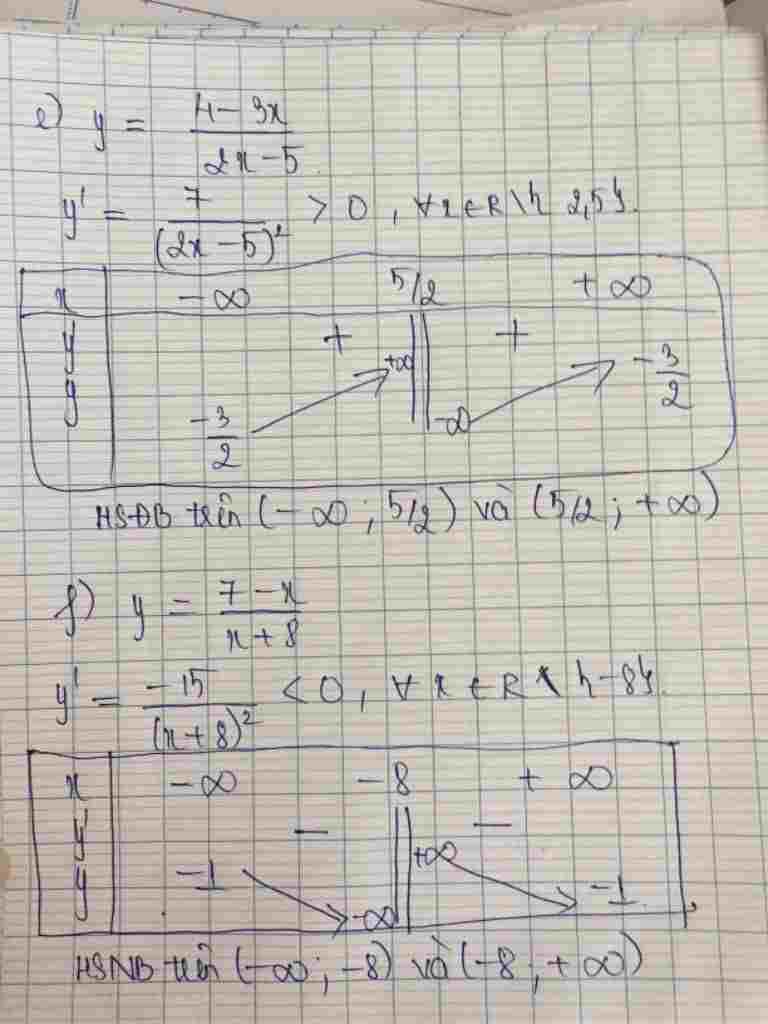 e) y = (4-3x)/(2x-5)
y' = 7/(2x-5)² > 0, ∀x∈R\{2,5}.
x -∞ 5/2 +∞
y' + +
y -3/2 +∞ -∞ -3/2
HSĐB trên (-∞; 5/2) và (5/2; +∞)
f) y = (7-x)/(x+8)
y' = -15/(x+8)² < 0, ∀x∈R\{-8}.
x -∞ -8 +∞
y' - -
y -1 -∞ +∞ -1
HSNB trên (-∞; -8) và (-8; +∞)